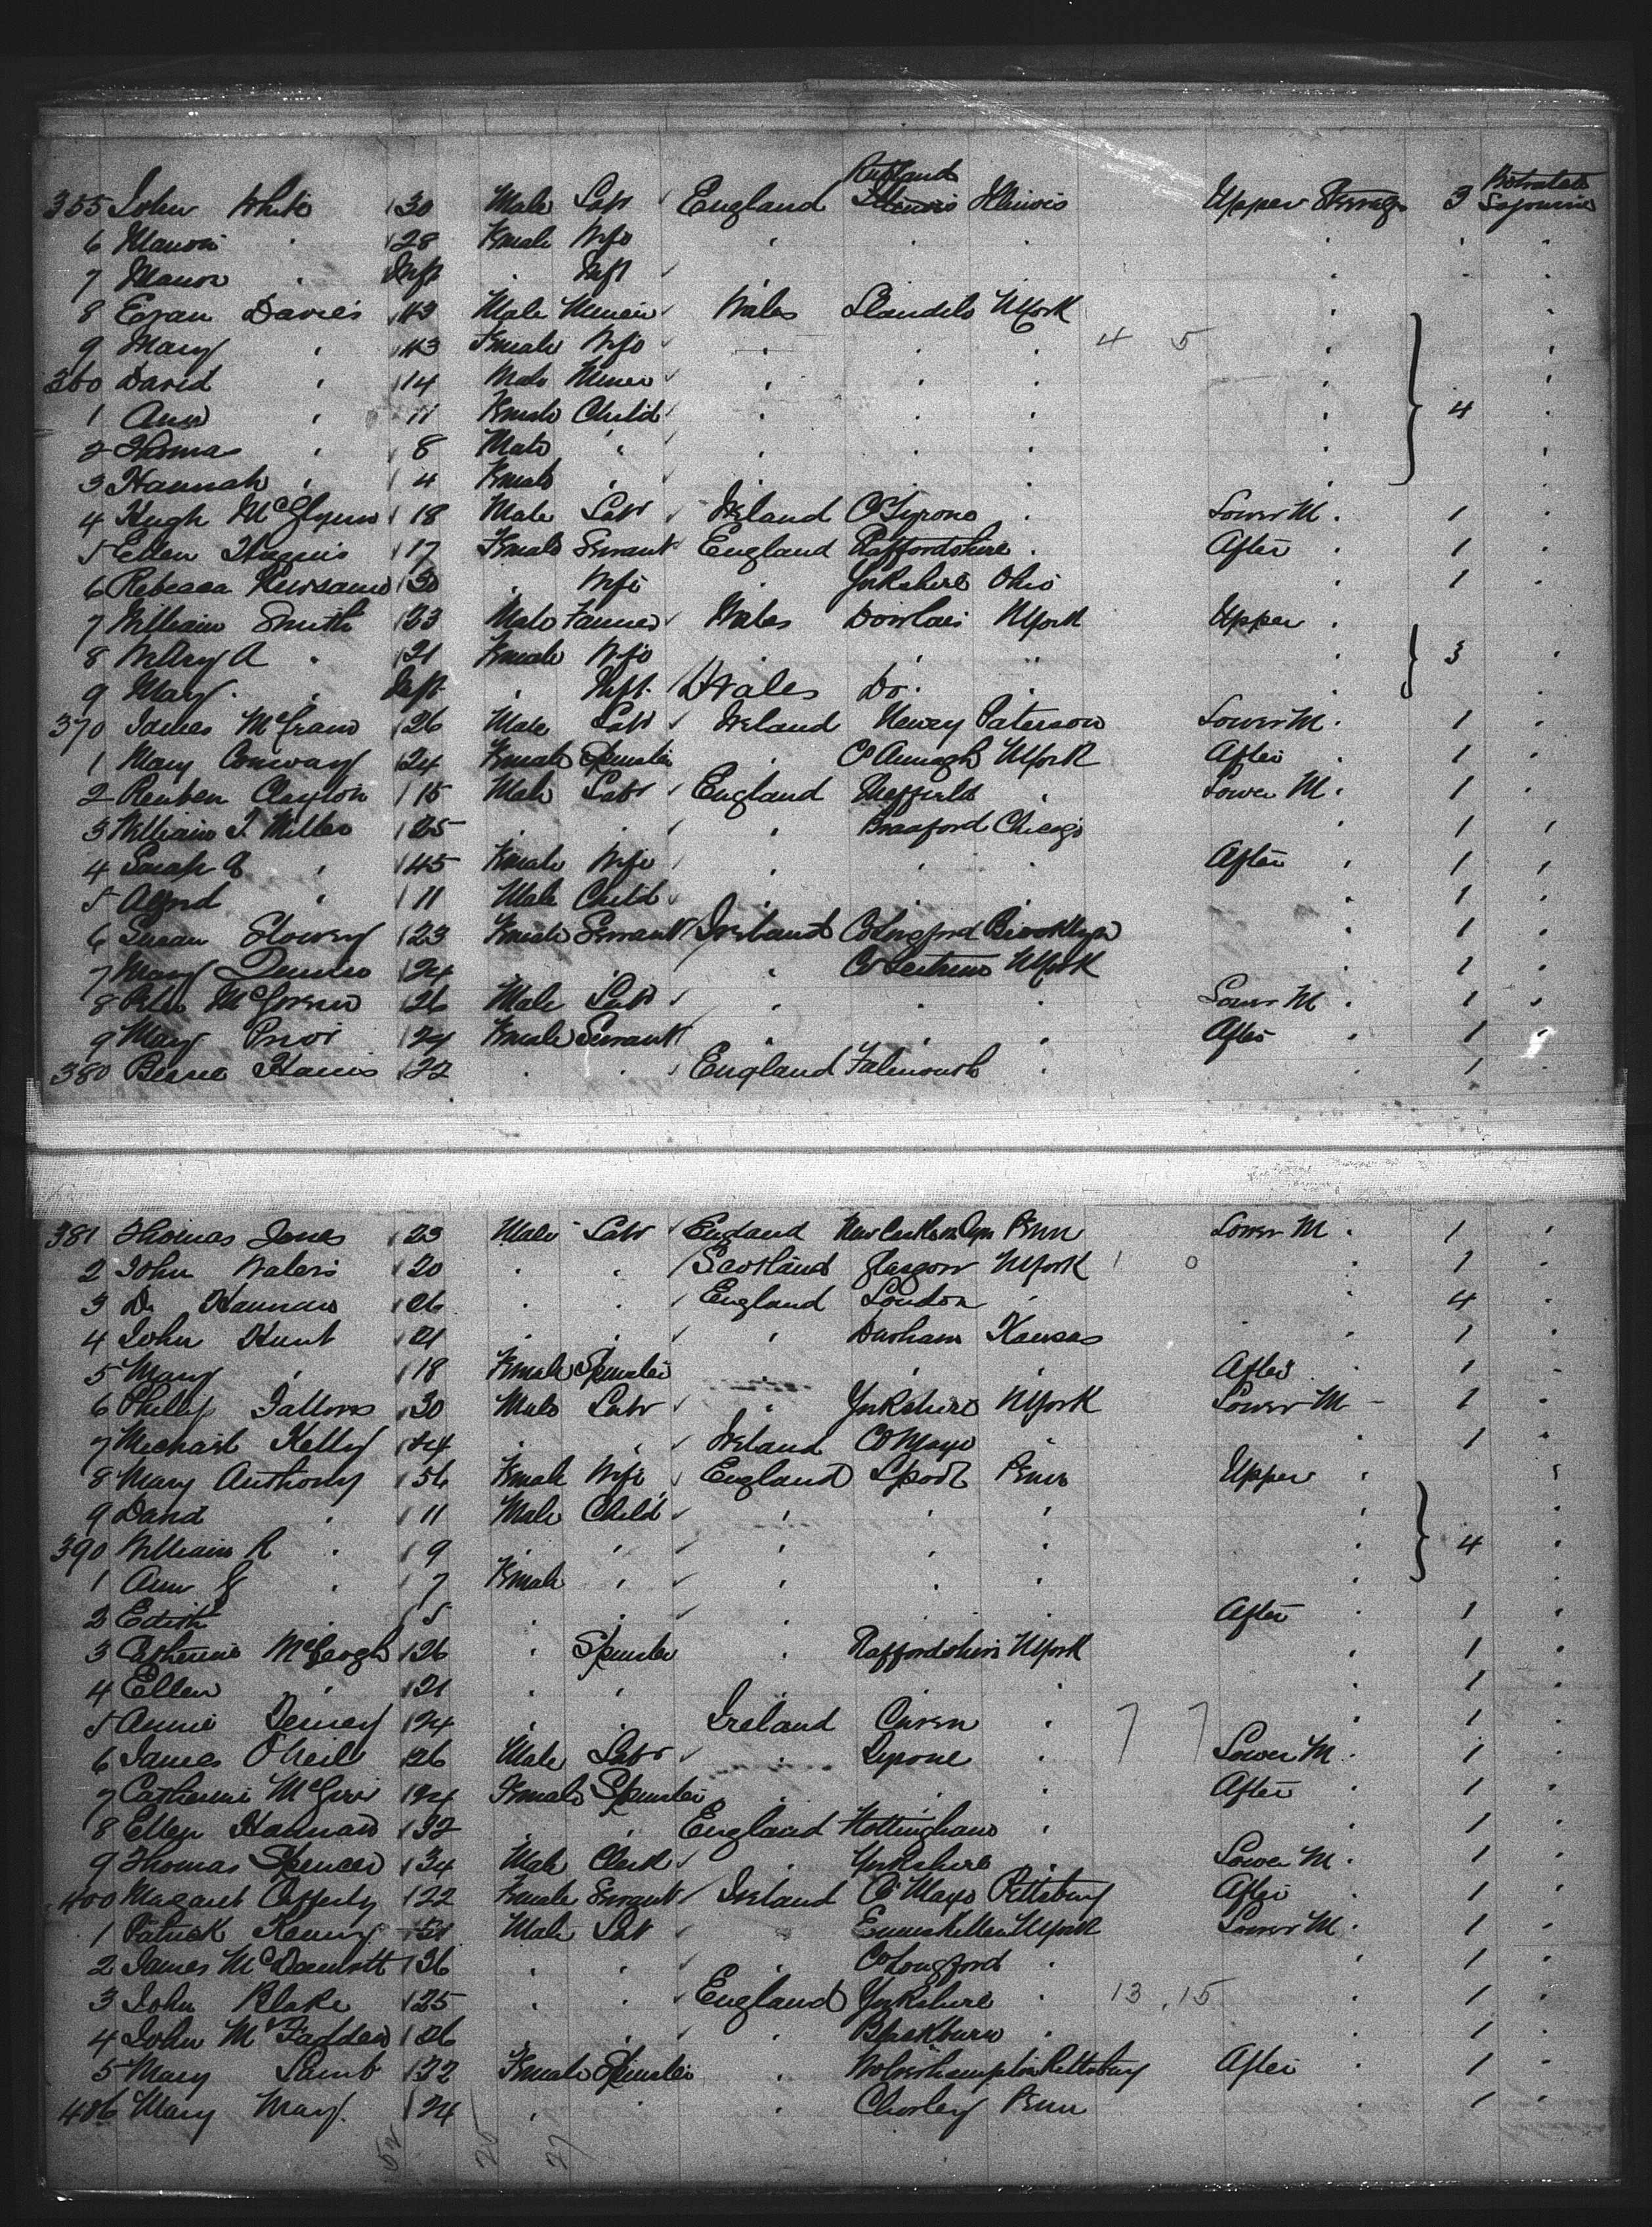 Rutland Protracted
355 John White 30 Male Labr England Illinois Illinois Upper Steerage 3 Sojourn
6 " 28 Female Wife " " " " " "
7 " Inft " Inft " " "
8 Evan Davies 43 Male Miner Wales Llandilo NYork " "
9 Mary " 43 Female Wife " " " 4 5 " "
360 David " 14 Male Miner " " " " "
1 Ann " 11 Female Child " " " " 4 "
2 Thomas " 8 Male " " " " " "
3 Hannah " 4 Female " " " " " "
4 Hugh McGlynn 18 Male Labr Ireland Co Tyrone " Lower M. 1 "
5 Ellen 17 Female Servant England Staffordshire " After " 1 "
6 Rebecca Newsame 30 " Wife " Yorkshire Ohio " 1 "
7 William Smith 23 Male Farmer Wales Dowlais NYork Upper "
8 A " 21 Female Wife " " " " 3 "
9 Mary " Inft " Inft Wales Do. " " "
370 James 26 Male Labr Ireland Newry Paterson Lower M. 1 "
1 Mary Conway 24 Female Spinster " Co Armagh NYork After " 1 "
2 Reuben Clayton 15 Male Labr England Sheffield " Lower M. 1 "
3 William J. Miller 25 " " " Bradford Chicago " 1 "
4 Sarah " 45 Female Wife " " " After " 1 "
5 Alfred " 11 Male Child " " " " 1 "
6 Susan Slowey 23 Female Servant Ireland Co Longford Brooklyn " 1 "
7 Mary 24 " " " Co Leitrim NYork " 1 "
8 Peter McGovern 26 Male Labr " " " Lower M. 1 "
9 Mary Prior 24 Female Servant " " " After " 1 "
380 22 " " England Falmouth " " 1 "
381 Thomas Jones 23 Male Labr England Penn Lower M. 1 "
2 John Waters 20 " " Scotland Glasgow NYork 1 0 " 1 "
3 D. Hannan 26 " " England London " " 4 "
4 John Hunt 21 " " " Durham Kansas " 1 "
5 Mary " 18 Female Spinster " " " After " 1 "
6 Philip Fallows 30 Male Labr " Yorkshire NYork Lower M 1 "
7 Michael Kelly 24 " " Ireland Co Mayo " " 1 "
8 Mary Anthony 36 Female Wife England Lpool Penn Upper " "
9 David " 11 Male Child " " " " "
390 William R " 9 " " " " " " 4 "
1 Ann " 7 Female " " " " " "
2 Edith " 5 " " " " " After " 1 "
3 Catherine McGeogh 26 " Spinster " Staffordshire NYork " 1 "
4 Ellen " 21 " " " " " " 1 "
5 Annie 24 " " Ireland " 7 7 " 1 "
6 James O'Neill 26 Male Labr " Tyrone " Lower M. 1 "
7 Catherine McGirr 24 Female Spinster " " " After " 1 "
8 Ellen Hannan 32 " " England Nottingham " " 1 "
9 Thomas Spencer 34 Male Clerk " Yorkshire " Lower M. 1 "
400 Margaret Cafferty 22 Female Servant Ireland Co Mayo Pittsburg After " 1 "
1 Patrick Male Labr " Enniskillen NYork Lower M. 1 "
2 James McDermott 36 " " " Co Longford " " 1 "
3 John Blake 25 " " England Yorkshire " 13 15 " 1 "
4 John McFadden 26 " " " Blackburn " " 1 "
5 Mary Lamb 22 Female Spinster " Wolverhampton Pittsburg After " 1 "
406 Mary May 24 " " " Chorley Penn " 1 "
27